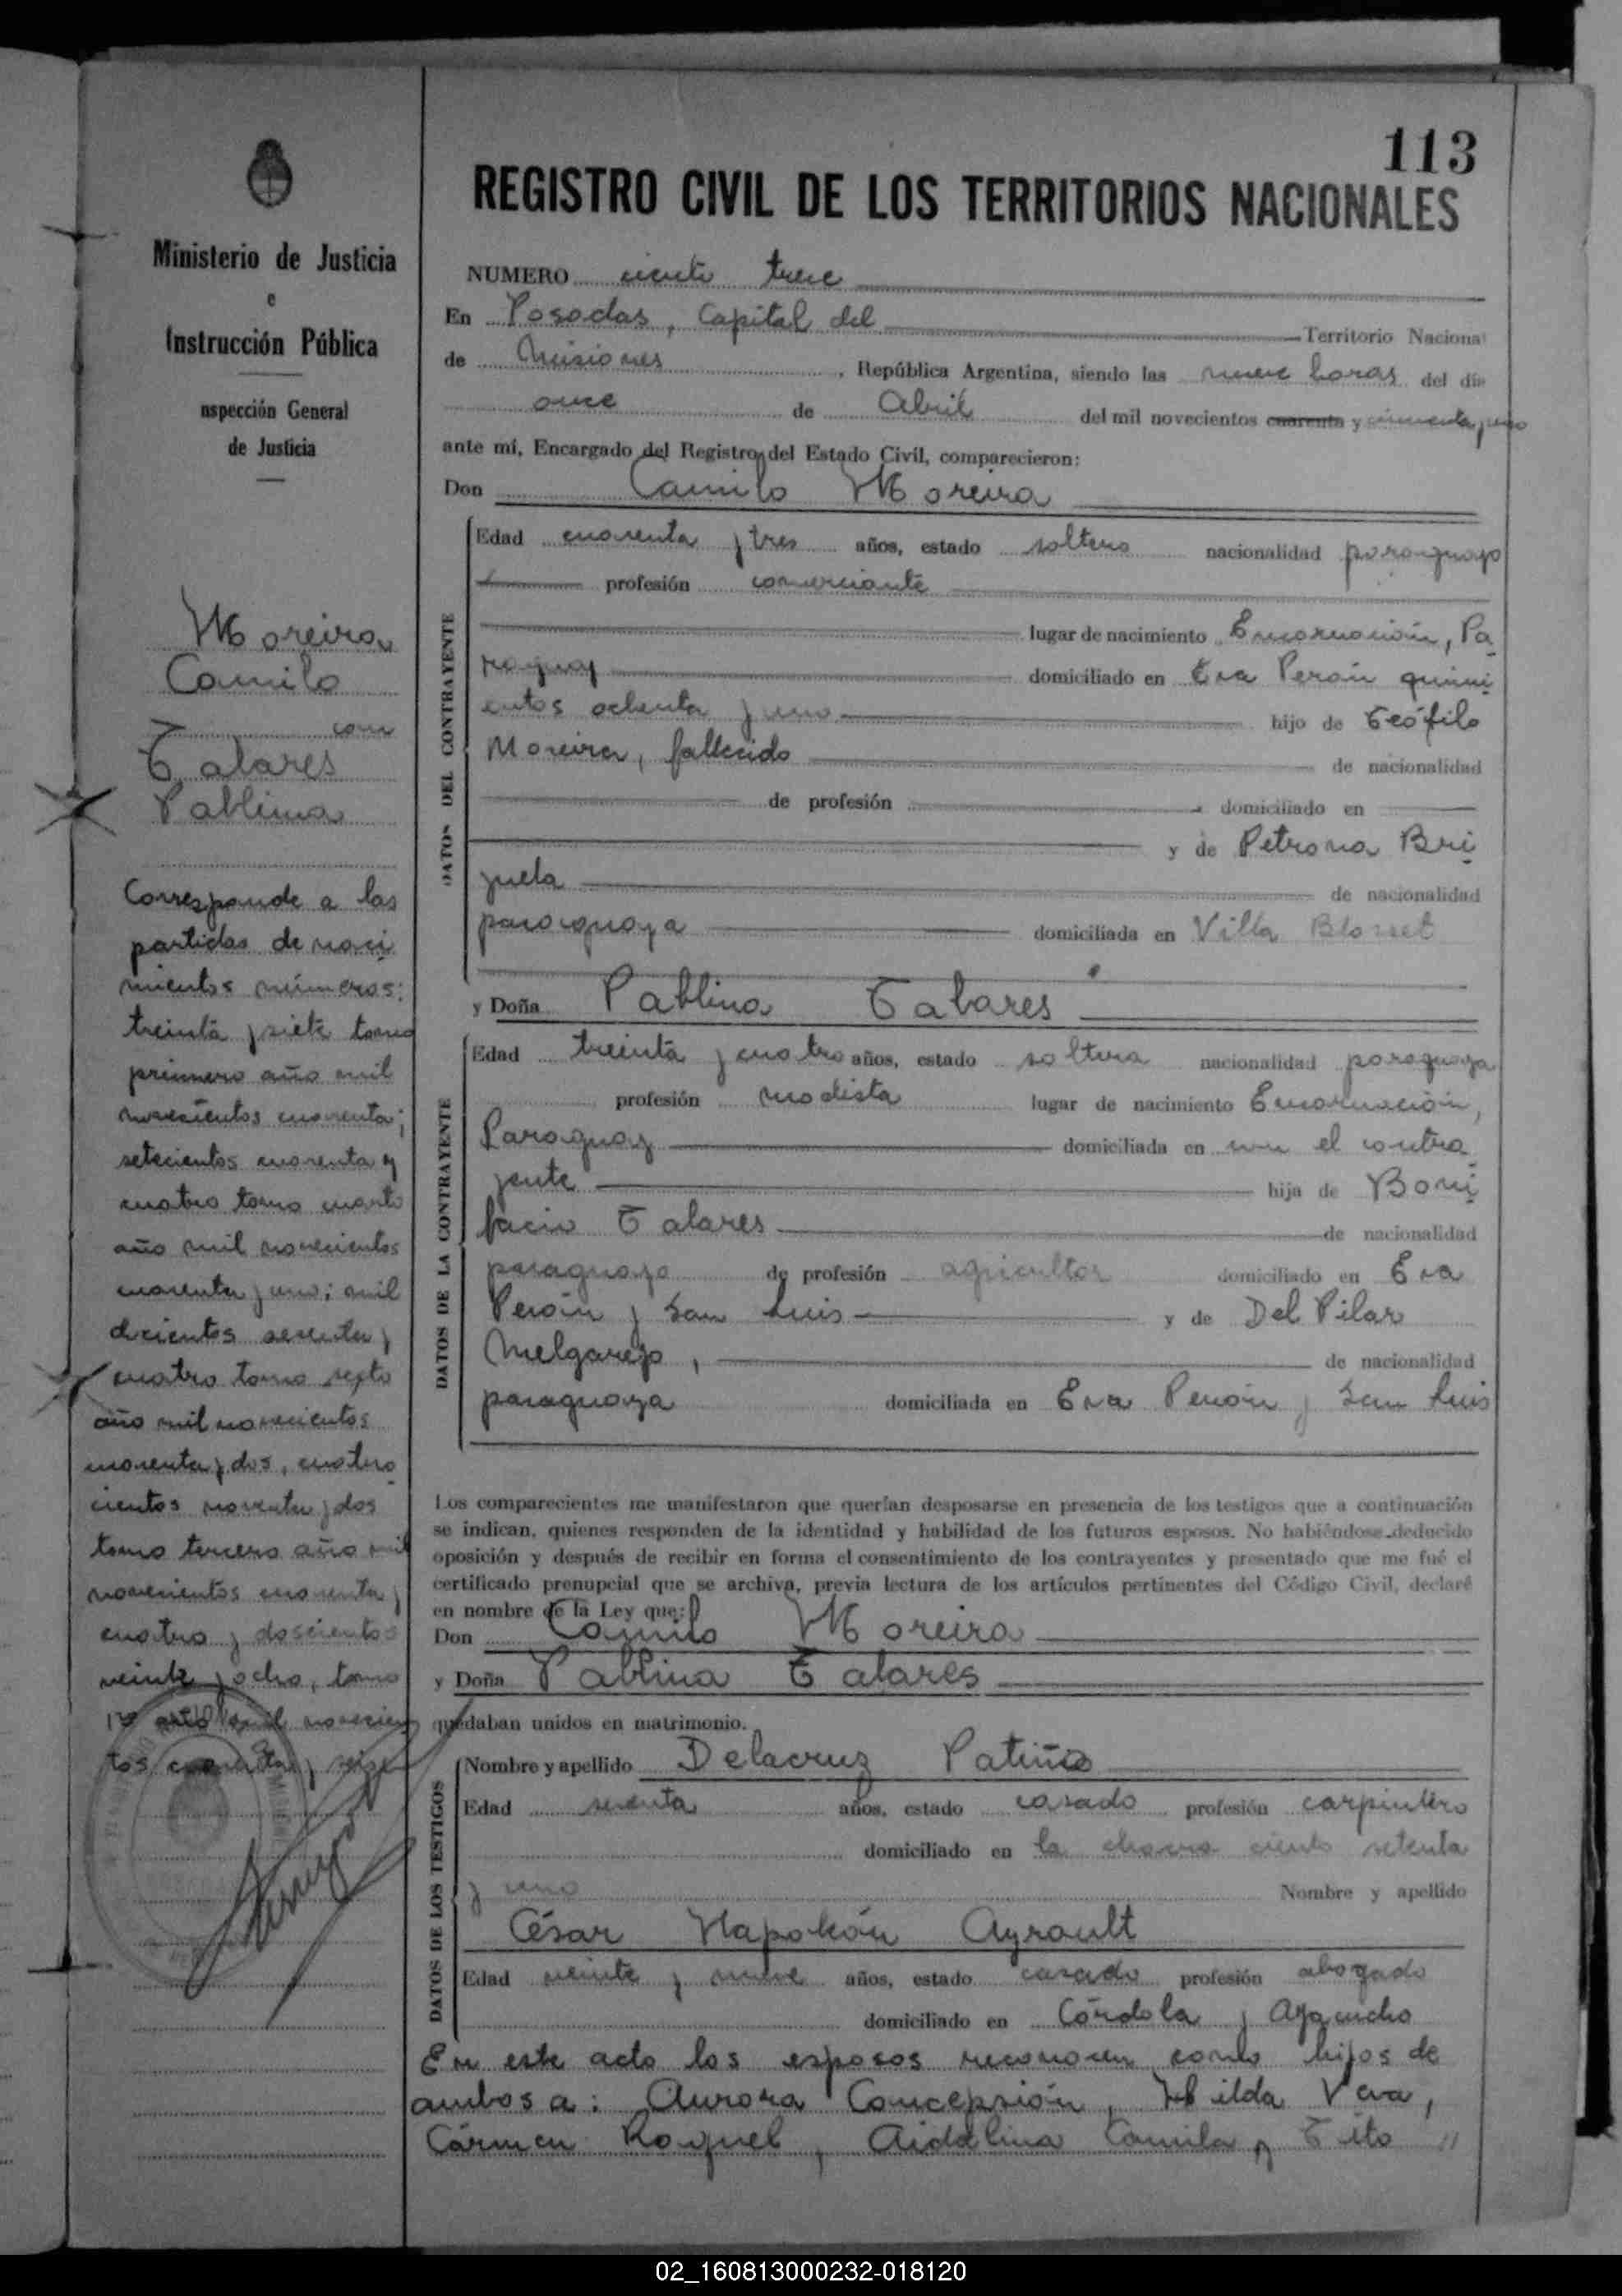 113
REGISTRO CIVIL DE LOS TERRITORIOS NACIONALES
Ministerio de Justicia
e
Instrucción Pública
nspección General
de Justicia
Moreira
Camilo
con
Tabares
Pablina
Corresponde a las
partidas de naci
mientos números:
treinta y siete tomo
primero año mil
novecientos cuarenta;
setecientos cuarenta y
cuatro tomo cuarto
año mil novecientos
cuarenta y uno; mil
docientos sesenta y
cuatro tomo septo
año mil novecientos
cuarenta y dos, cuatro
cientos noventa y dos
tomo tercero año mil
novecientos cuarenta y
cuatro y doscientos
veinte y ocho, tomo
año mil novecien
tos cuarenta y seis
NUMERO ciento trece
En Posadas, Capital del Territorio Naciona
de Misiones, República Argentina, siendo las nueve horas del día
once de Abril del mil novecientos cuarenta y cincuenta y uno
ante mí, Encargado del Registro del Estado Civil, comparecieron:
Don Camilo Moreira
DATOS DEL CONTRAYENTE
Edad cuarenta y tres años, estado soltero nacionalidad paraguayo
profesión comerciante
lugar de nacimiento Encarnación, Pa
raguay domiciliado en Eva Perón quini
entos ochenta y uno hijo de Teófilo
Moreira, fallecido de nacionalidad
de profesión domiciliado en
y de Petrona Bri
zuela de nacionalidad
paraguaya domiciliada en Villa Blosset
y Doña Pablina Tabares
DATOS DE LA CONTRAYENTE
Edad treinta y cuatro años, estado soltera nacionalidad paraguaya
profesión modista lugar de nacimiento Encarnación,
Paraguay domiciliada en con el contra
yente hija de Boni
facio Tabares de nacionalidad
paraguayo de profesión agricultor domiciliado en Eva
Perón y San Luis y de Del Pilar
Melgarejo, de nacionalidad
paraguaya domiciliada en Eva Perón y San Luis
Los comparecientes me manifestaron que querían desposarse en presencia de los testigos que a continuación
se indican, quienes responden de la identidad y habilidad de los futuros esposos. No habiéndose deducido
oposición y después de recibir en forma el consentimiento de los contrayentes y presentado que me fué el
certificado prenupcial que se archiva, previa lectura de los artículos pertinentes del Código Civil, declaré
en nombre de la Ley que:
Don Camilo Moreira
y Doña Pablina Tabares
quedaban unidos en matrimonio.
DATOS DE LOS TESTIGOS
Nombre y apellido Delacruz Patiño
Edad sesenta años, estado casado profesión carpintero
domiciliado en la chacra ciento setenta
y uno Nombre y apellido
César Napoleón Ayrault
Edad veinte y nueve años, estado casado profesión abogado
domiciliado en Córdoba y Ayacucho
En este acto los esposos reconocen como hijos de
ambos a: Aurora Concepsión, Hilda Vera,
Cármen Raquel, Aidelina Camila y Tito //
02_160813000232-018120